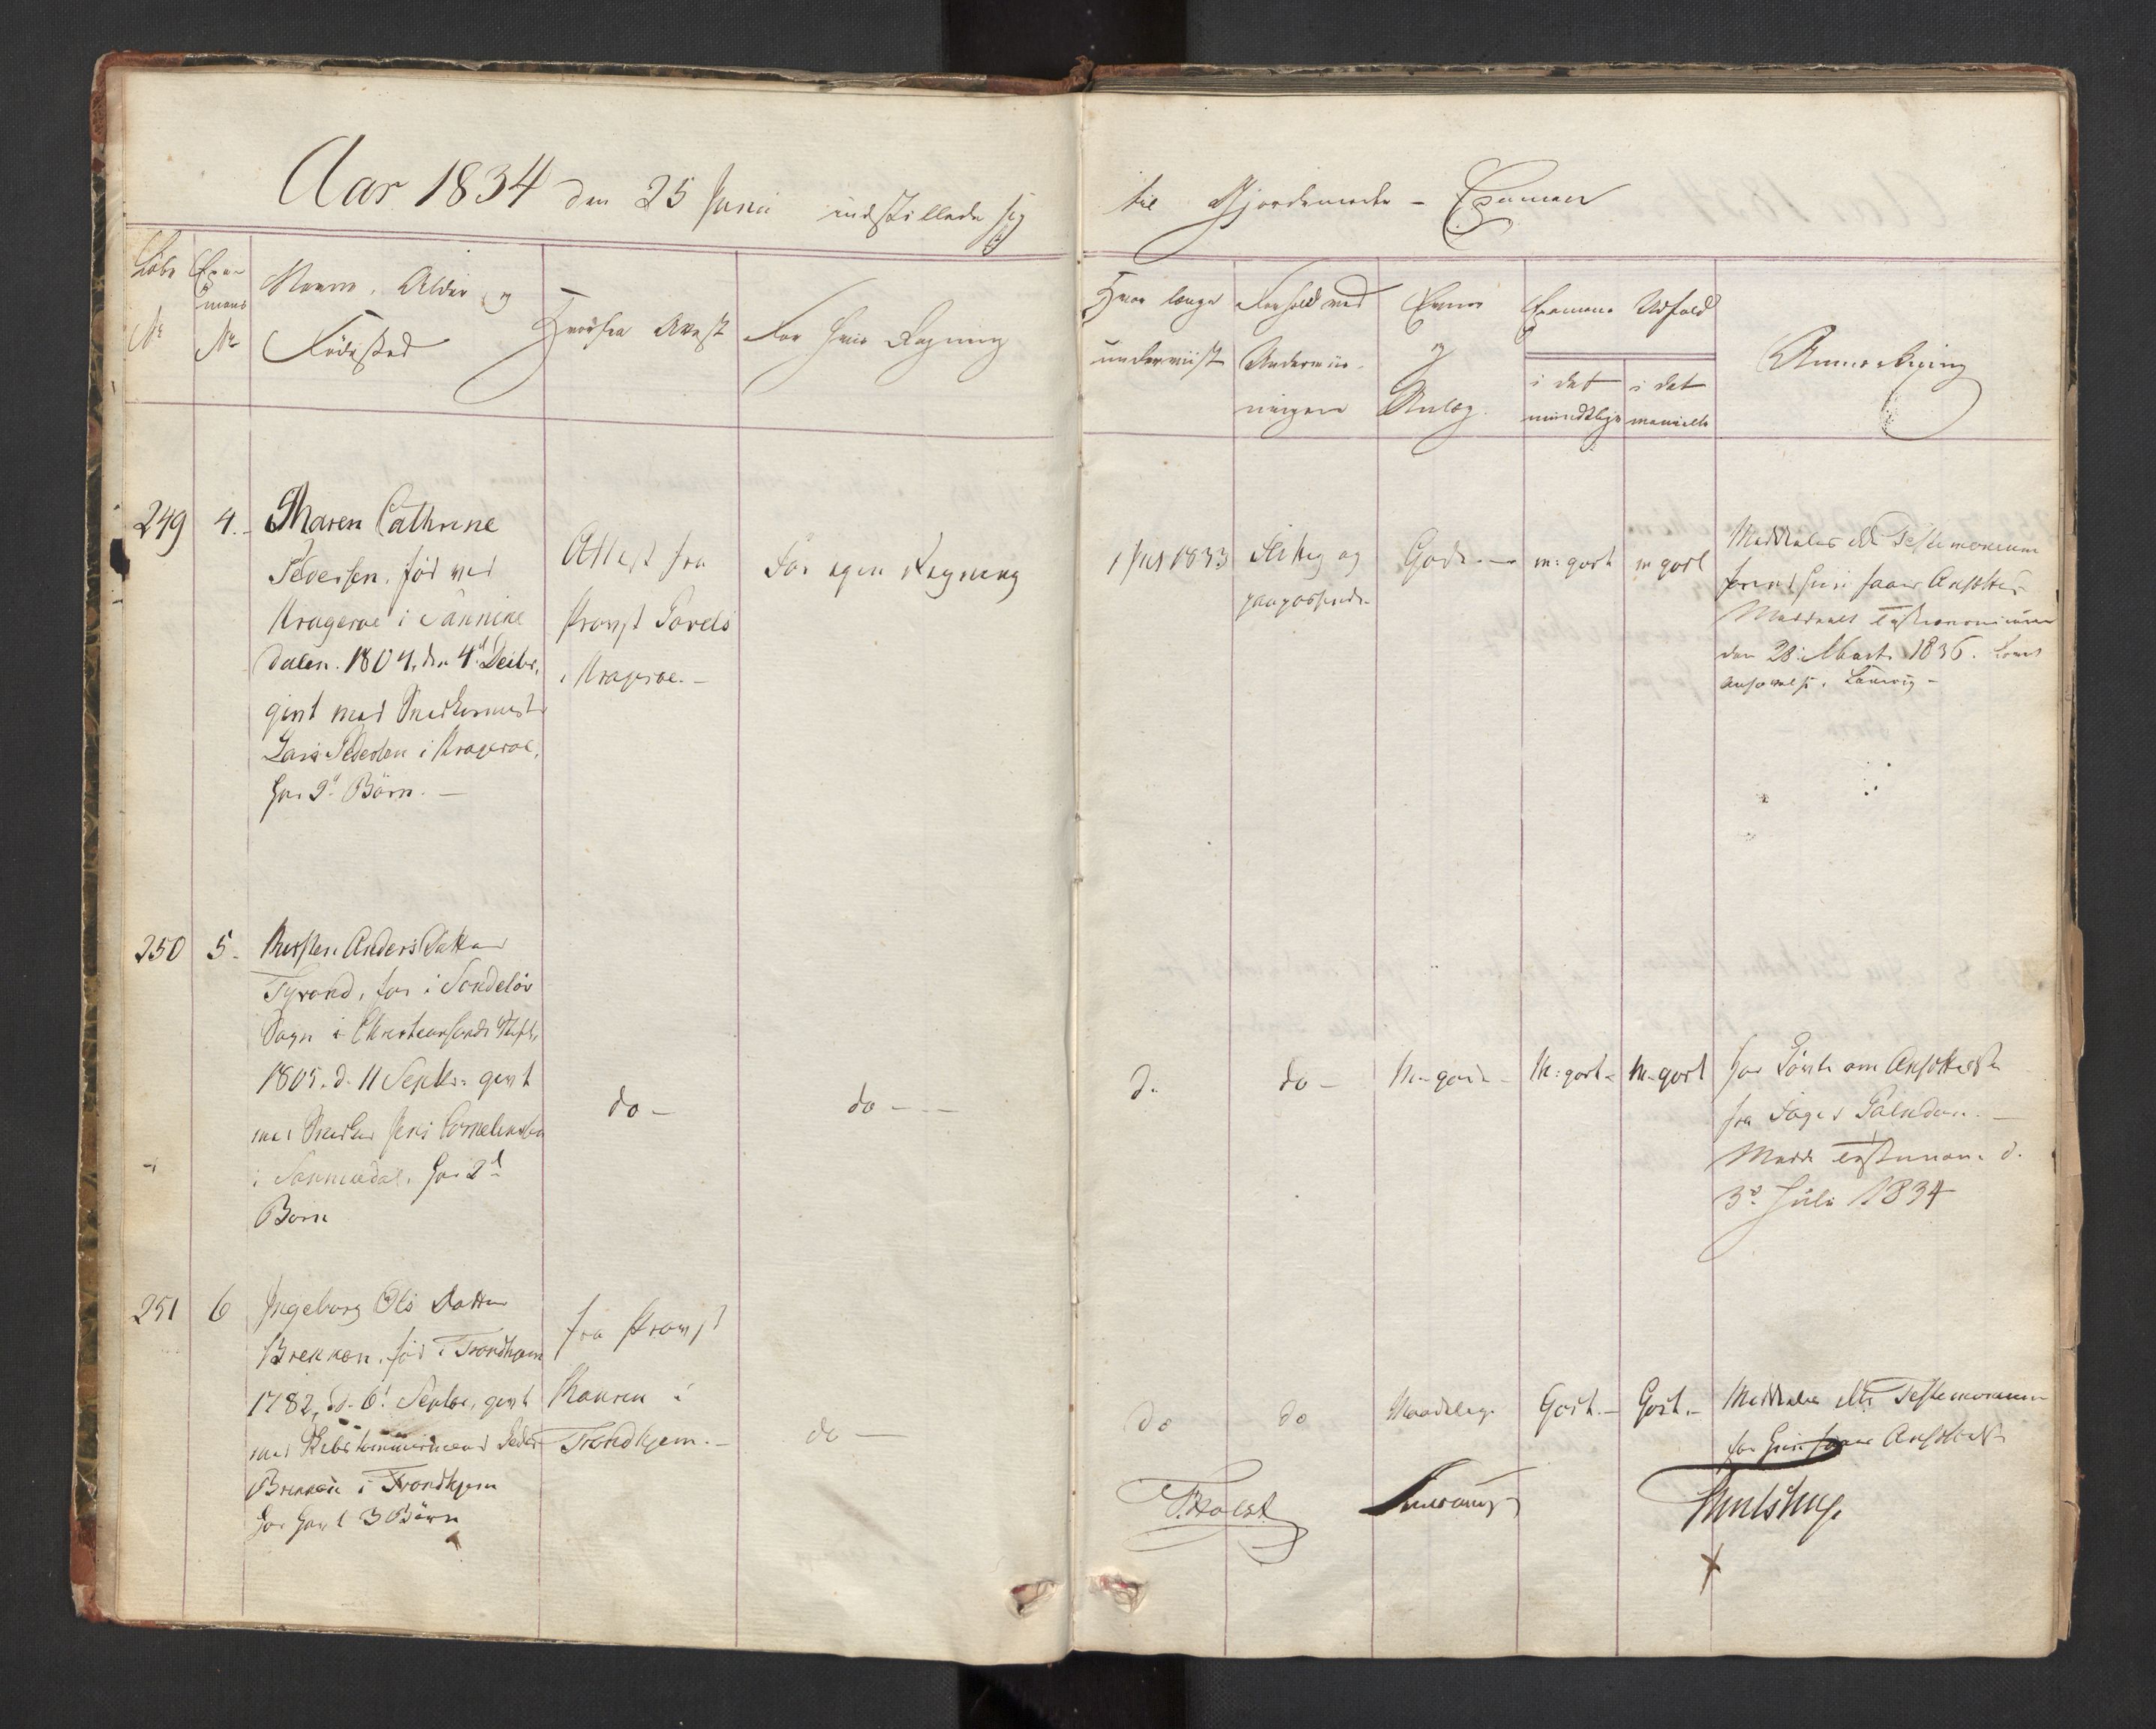 Aar 1834 den 25 Juni indstillede sig
til Gjordemoder - Examen
Löbe
No
Exa-
mens
No
Navn, Alder og
Födested
Hvorfra Attest
For hvis Regning
Hvor længe
underviist
Forhold ved
Underviis-
ningen
Evner
og
Anlæg.
Examens Udfald
i det
mundtlige
i det
manuelle
Anmærkning
249
4.
Maren Cathrine
Pedersen, föd ved
Krageröe i Sannike
dalen. 1804, den 4d Decbr,
givt med Snedkermester
Lars Pedersen i Krageröe,
har 2d Börn. -
Attest fra
Provst
i Krageröe. -
For egen Regning
1 Juli 1833
Flittig og
Gode. -
m: godt
m godt
Meddeles ikke Testemonium
förend hun faaer Ansættelse
Meddeelt Testimonium
den 28 Marts 1836.
250
5.
Kirsten Anders Datter
Tyvand, föd i Söndelöv
Sogn i Christiansands Stift,
1805. d. 11 Septbr: givt
med Snedker Jens Cornelinssen
i Sannikedal, har 2d
Börn
do -
do - -
do
do -
M. gode -
M: godt -
M. godt
har Löfte om Ansættelse
fra
Medd Testimon. d.
3d Juli 1834
251
6
Ingeborg Ols Datter
Brekken, föd i Trondhjem
1782, d. 6t Septbr, givt
med Skibstömmermand Peder
Brekken i Trondhjem
har havt 3 Börn
fra Provst
i
Trondhjem. -
do -
do
do
Maadelige
Godt. -
Godt. -
Meddeles ikke Testemonium
för hun faaer Ansættelse
F. Holst